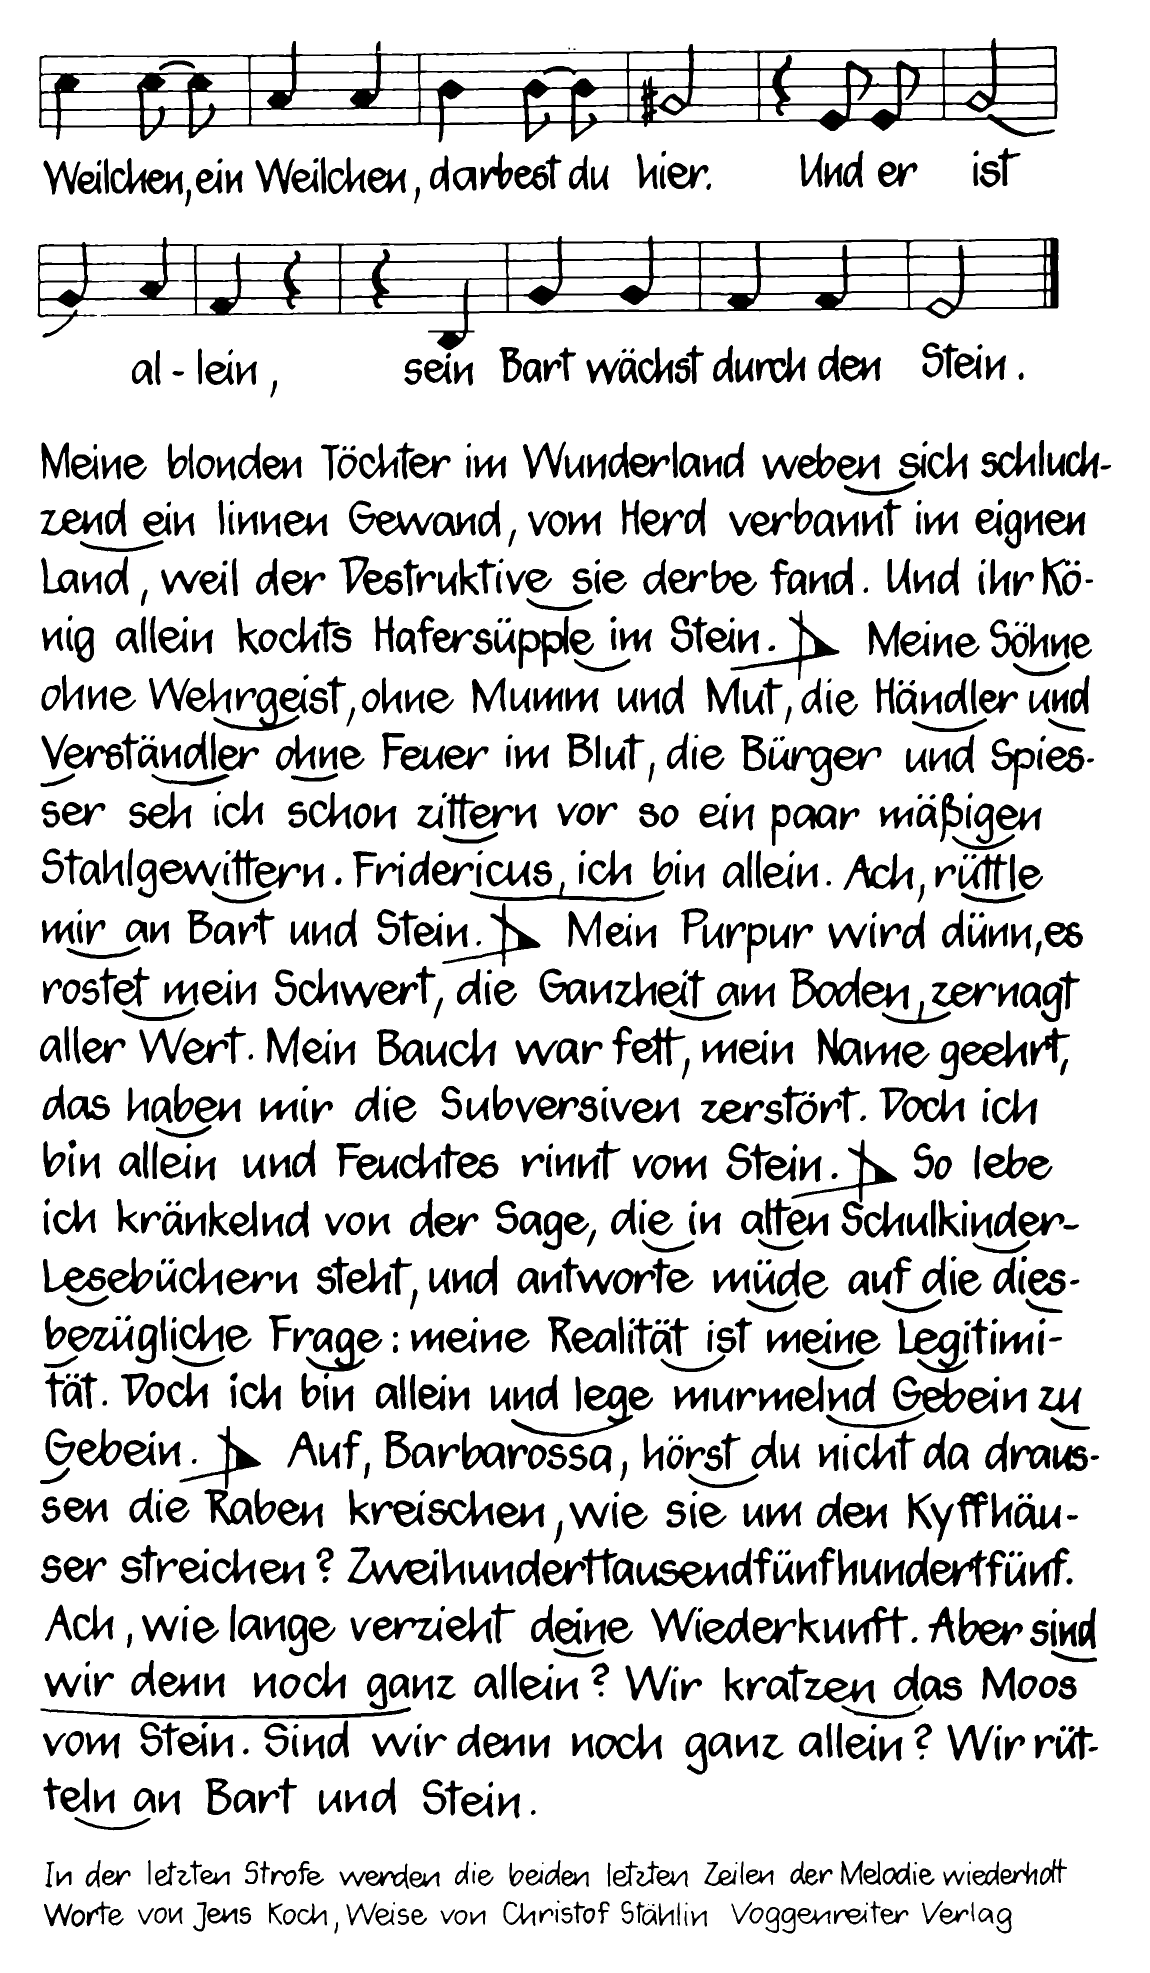 Weilchen, ein Weilchen, darbest du hier. Und er ist
al - lein, sein Bart wächst durch den Stein.
Meine blonden Töchter im Wunderland weben sich schluch-
zend ein linnen Gewand, vom Herd verbannt im eignen
Land, weil der Destruktive sie derbe fand. Und ihr Kö-
nig allein kochts Hafersüpple im Stein. Meine Söhne
ohne Wehrgeist, ohne Mumm und Mut, die Händler und
Verständler ohne Feuer im Blut, die Bürger und Spies-
ser seh ich schon zittern vor so ein paar mäßigen
Stahlgewittern. Fridericus, ich bin allein. Ach, rüttle
mir an Bart und Stein. Mein Purpur wird dünn, es
rostet mein Schwert, die Ganzheit am Boden, zernagt
aller Wert. Mein Bauch war fett, mein Name geehrt,
das haben mir die Subversiven zerstört. Doch ich
bin allein und Feuchtes rinnt vom Stein. So lebe
ich kränkelnd von der Sage, die in alten Schulkinder-
Lesebüchern steht, und antworte müde auf die dies-
bezügliche Frage: meine Realität ist meine Legitimi-
tät. Doch ich bin allein und lege murmelnd Gebein zu
Gebein. Auf, Barbarossa, hörst du nicht da draus-
sen die Raben kreischen, wie sie um den Kyffhäu-
ser streichen? Zweihunderttausendfünfhundertfünf.
Ach, wie lange verzieht deine Wiederkunft. Aber sind
wir denn noch ganz allein? Wir kratzen das Moos
vom Stein. Sind wir denn noch ganz allein? Wir rüt-
teln an Bart und Stein.
In der letzten Strofe werden die beiden letzten Zeilen der Melodie wiederholt
Worte von Jens Koch, Weise von Christof Stählin Voggenreiter Verlag